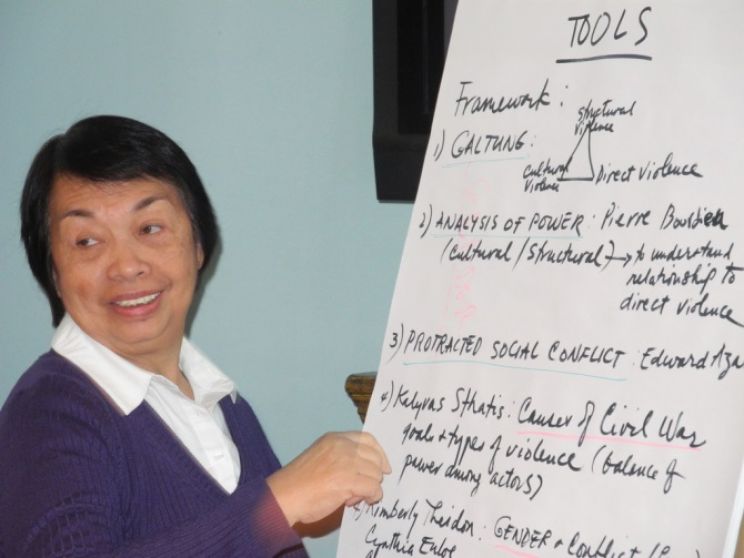 TOOLS
Framework:
1) GALTUNG:
structural
violence
Cultural
violence
Direct Violence
2) ANALYSIS OF POWER: Pierre
(Cultural / Structural) → to understand
relationship to
direct violence
3) PROTRACTED SOCIAL CONFLICT: Edward Aza
4) Kalyvas Stathis: Causes of Civil War
goals + types of violence (balance of
power among actors)
Kimberly Theidon: GENDER + Conflict
Cynthia Enloe